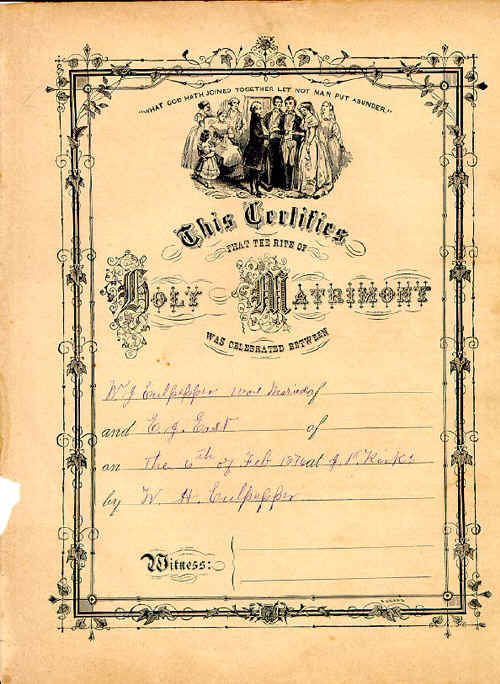 "WHAT GOD HATH JOINED TOGETHER LET NOT MAN PUT ASUNDER."
This Certifies
THAT THE RITE OF
HOLY MATRIMONY
WAS CELEBRATED BETWEEN
W J Culpepper were Maried of
and E. J. East of
on The 6th of Feb 1876 at J. P. Kirks
by W. H. Culpepper
Witness: